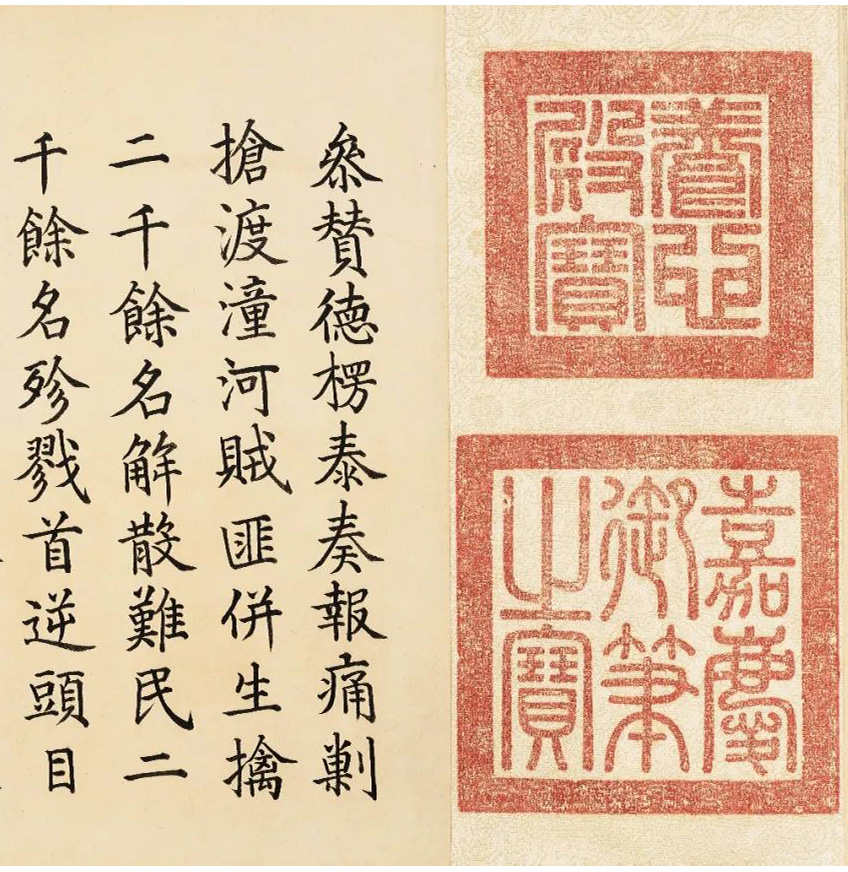 養心殿寶
嘉慶御筆之寶
叅贊德楞泰奏報痛剿
搶渡潼河賊匪併生擒
二千餘名解散難民二
千餘名殄戮首逆頭目